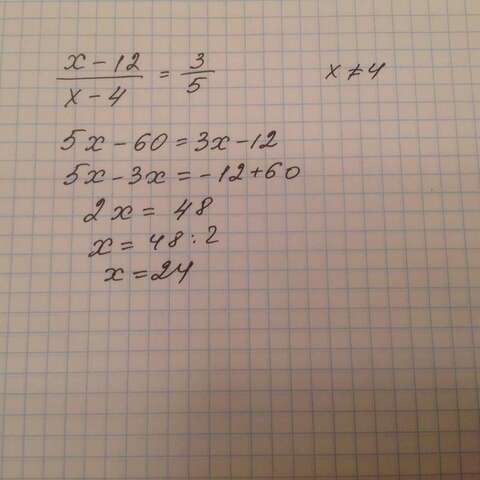 x - 12 / x - 4 = 3 / 5    x ≠ 4
5x - 60 = 3x - 12
5x - 3x = -12 + 60
2x = 48
x = 48 : 2
x = 24